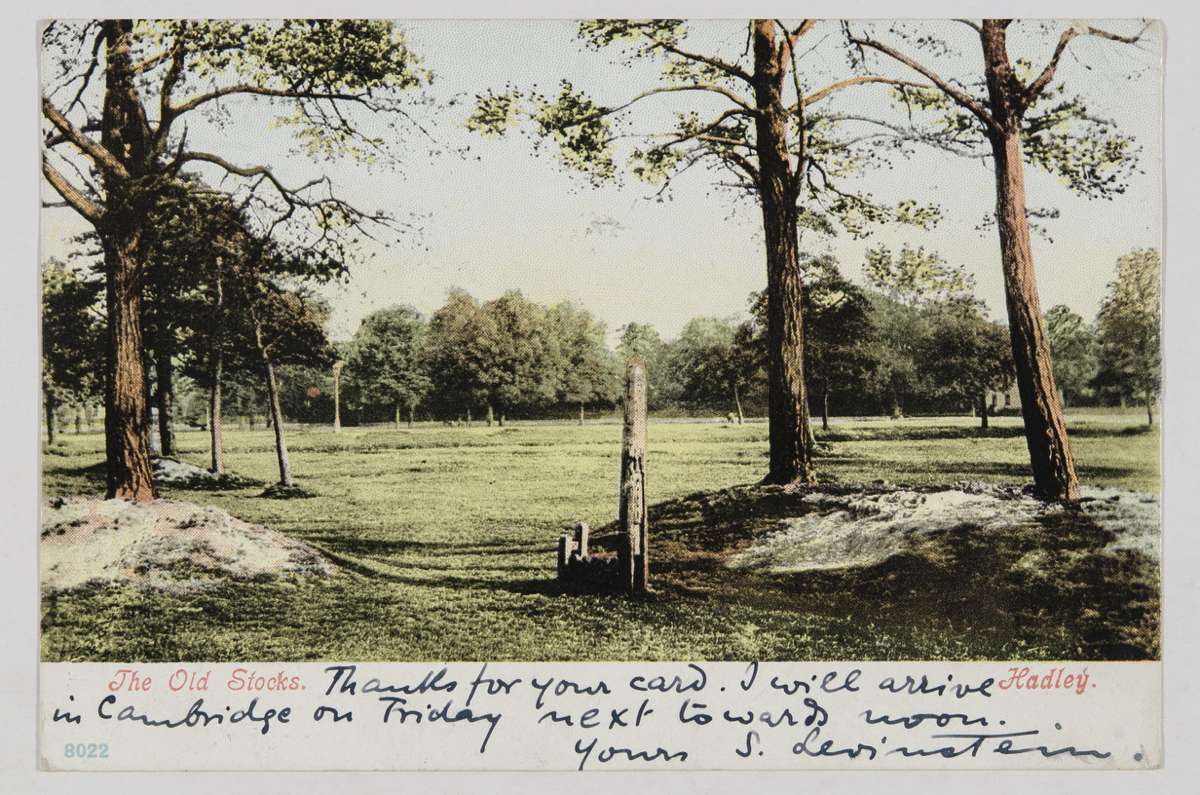 The Old Stocks. Thanks for your card. I will arrive Hadley.
in Cambridge on Friday next towards noon.
8022 Yours S. Levinstein.